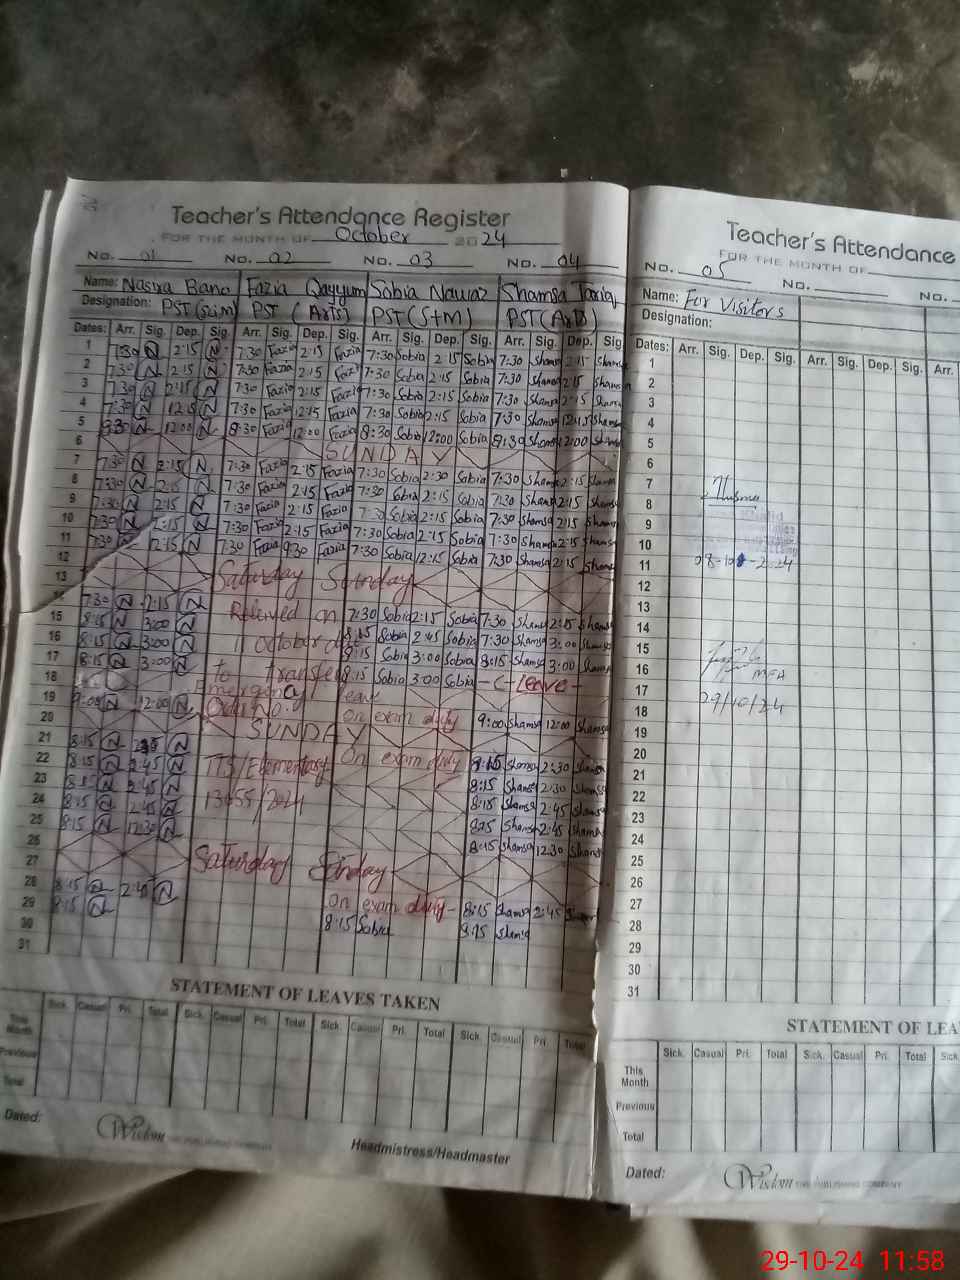 Teacher's Attendance Register
FOR THE MONTH OF October 2024
No. 01 No. 02 No. 03 No. 04
Name: Nasira Bano Fazia Qayyum Sobia Nawaz Shamsa Tariq
Designation: PST (Sci.m) PST (Arts) PST (S+M) PST (Arts)
Dates: Arr. Sig. Dep. Sig. Arr. Sig. Dep. Sig. Arr. Sig. Dep. Sig. Arr. Sig. Dep. Sig.
1 7:30 N 2:15 N 7:30 Fazia 2:15 Fazia 7:30 Sobia 2:15 Sobia 7:30 Shamsa 2:15 Shamsa
2 7:30 N 2:15 N 7:30 Fazia 2:15 Fazia 7:30 Sobia 2:15 Sobia 7:30 Shamsa 2:15 Shamsa
3 7:30 N 2:15 N 7:30 Fazia 2:15 Fazia 7:30 Sobia 2:15 Sobia 7:30 Shamsa 2:15 Shamsa
4 7:30 N 12:15 N 7:30 Fazia 12:15 Fazia 7:30 Sobia 12:15 Sobia 7:30 Shamsa 12:15 Shamsa
5 8:30 N 12:00 N 8:30 Fazia 12:00 Fazia 8:30 Sobia 12:00 Sobia 8:30 Shamsa 12:00 Shamsa
6 SUNDAY
7 7:30 N 2:15 N 7:30 Fazia 2:15 Fazia 7:30 Sobia 2:30 Sobia 7:30 Shamsa 2:15 Shamsa
8 7:30 N 2:15 N 7:30 Fazia 2:15 Fazia 7:30 Sobia 2:15 Sobia 7:30 Shamsa 2:15 Shamsa
9 7:30 N 2:15 N 7:30 Fazia 2:15 Fazia 7:30 Sobia 2:15 Sobia 7:30 Shamsa 2:15 Shamsa
10 7:30 N 2:15 N 7:30 Fazia 2:15 Fazia 7:30 Sobia 2:15 Sobia 7:30 Shamsa 2:15 Shamsa
11 7:30 N 12:15 N 7:30 Fazia 9:30 Fazia 7:30 Sobia 12:15 Sobia 7:30 Shamsa 2:15 Shamsa
12 Saturday Sunday
13
14 7:30 N 2:15 N Relieved on 7:30 Sobia 2:15 Sobia 7:30 Shamsa 2:15 Shamsa
15 8:15 N 3:00 N 11 October 8:15 Sobia 2:45 Sobia 7:30 Shamsa 3:00 Shamsa
16 8:15 N 3:00 N 8:15 Sobia 3:00 Sobia 8:15 Shamsa 3:00 Shamsa
17 8:15 N 3:00 N to transfer 8:15 Sobia 3:00 Sobia -C-Leave-
18 Emergency leave
19 9:00 N 12:00 N Order No: On exam duty 9:00 Shamsa 12:00 Shamsa
20 SUNDAY
21 8:15 N N On exam duty 8:15 Shamsa 2:30 Shamsa
22 8:15 N 2:45 N TTS/Elementary 8:15 Shamsa 2:30 Shamsa
23 8:15 N 2:45 N 8:15 Shamsa 2:45 Shamsa
24 8:15 N 2:45 N 13655/2024 8:15 Shamsa 2:45 Shamsa
25 8:15 N 12:30 N 8:15 Shamsa 12:30 Shamsa
26 Saturday Sunday
27
28 8:15 N 2:45 N On exam duty- 8:15 Shamsa 2:45 Shamsa
29 8:15 N 8:15 Sobia 8:15 Shamsa
30
31
STATEMENT OF LEAVES TAKEN
Sick. Casual Pri. Total Sick. Casual Pri. Total Sick. Casual Pri. Total Sick. Casual Pri. Total
This Month
Previous
Total
Dated:
Wisdom THE PUBLISHING COMPANY
Headmistress/Headmaster
Teacher's Attendance
FOR THE MONTH OF
No. 05 No. No.
Name: For Visitors
Designation:
Dates: Arr. Sig. Dep. Sig. Arr. Sig. Dep. Sig. Arr.
1
2
3
4
5
6
7
8
9
10
11 08-10-2024
12
13
14
15
16 MEA
17
18 29/10/24
19
20
21
22
23
24
25
26
27
28
29
30
31
STATEMENT OF LEA
Sick. Casual Pri. Total Sick. Casual Pri. Total Sick
This Month
Previous
Total
Dated:
Wisdom THE PUBLISHING COMPANY
29-10-24 11:58